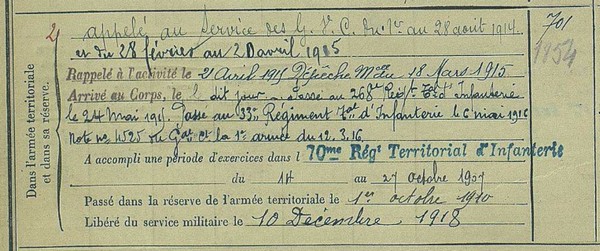 Dans l'armée territoriale
et dans sa réserve.
appelé au Service des G. V. C. du 1er au 28 août 1914
et du 28 février au 20 avril 1915
Rappelé à l'activité le 21 Avril 1915 Dépêche Mlle du 18 Mars 1915
Arrivé au Corps, le dit jour. Passé au 268e Régt d'Infanterie
le 24 mai 191 Passé au 33e Régiment Tal d'Infanterie le 6 mai 1916
Note no 4525 du Gal Ct la 1re armée du 12.3.16
A accompli une période d'exercices dans l 70me Régt Territorial d'Infanterie
du 14 au 27 octobre 1907
Passé dans la réserve de l'armée territoriale le 1er octobre 1910
Libéré du service militaire le 10 Décembre 1918
701
1154